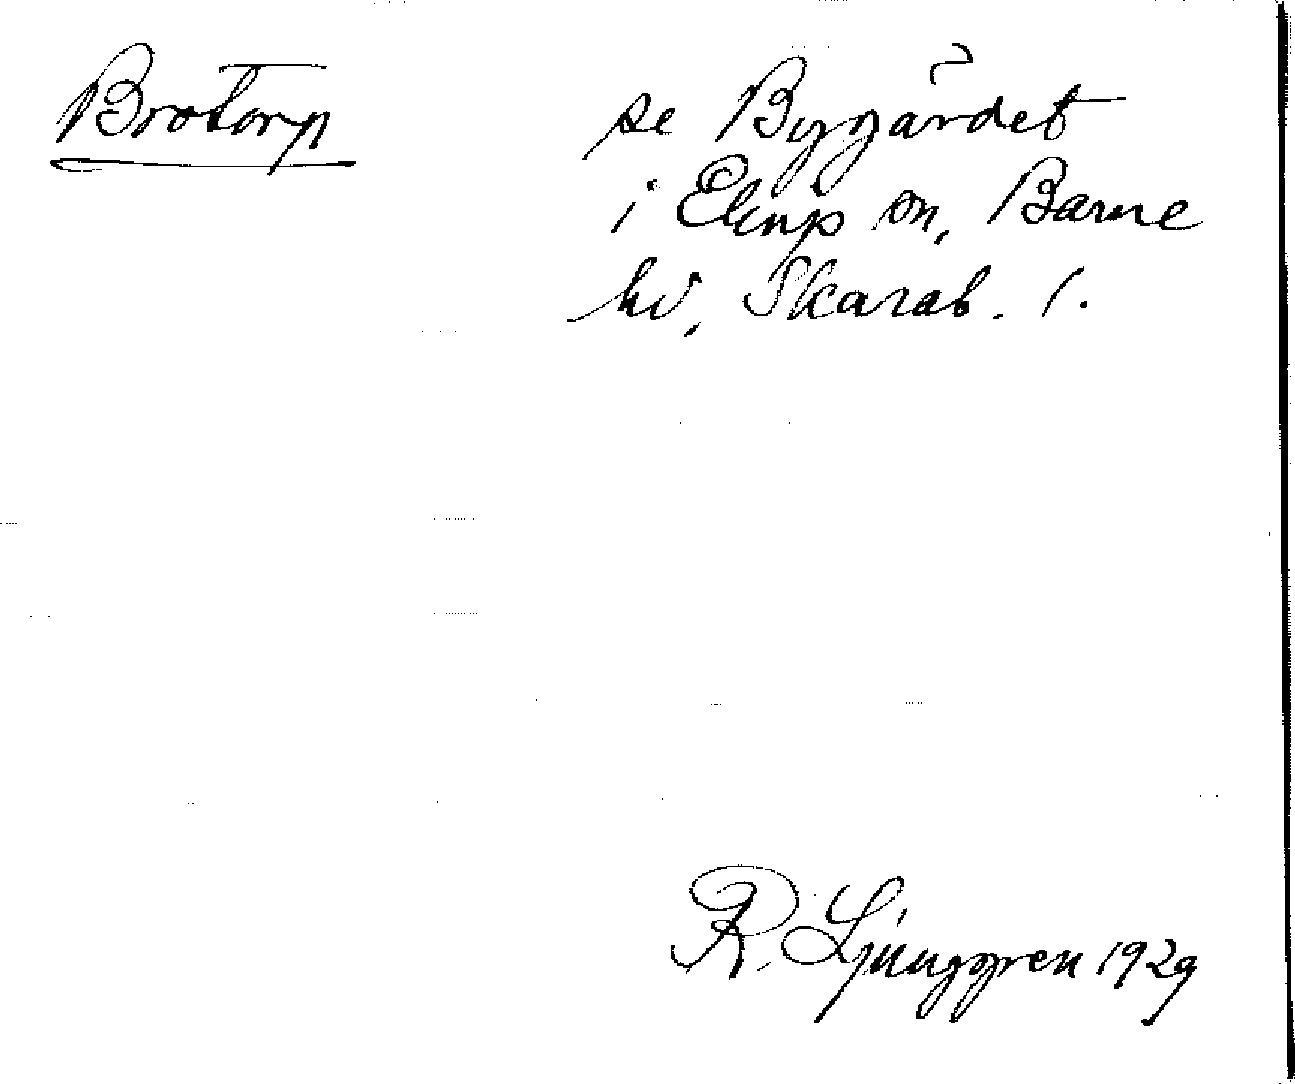 Brotorp
se Bygärdet
i Elings sn, Barne
hd, Skarab. l.
R. Ljunggren 1929